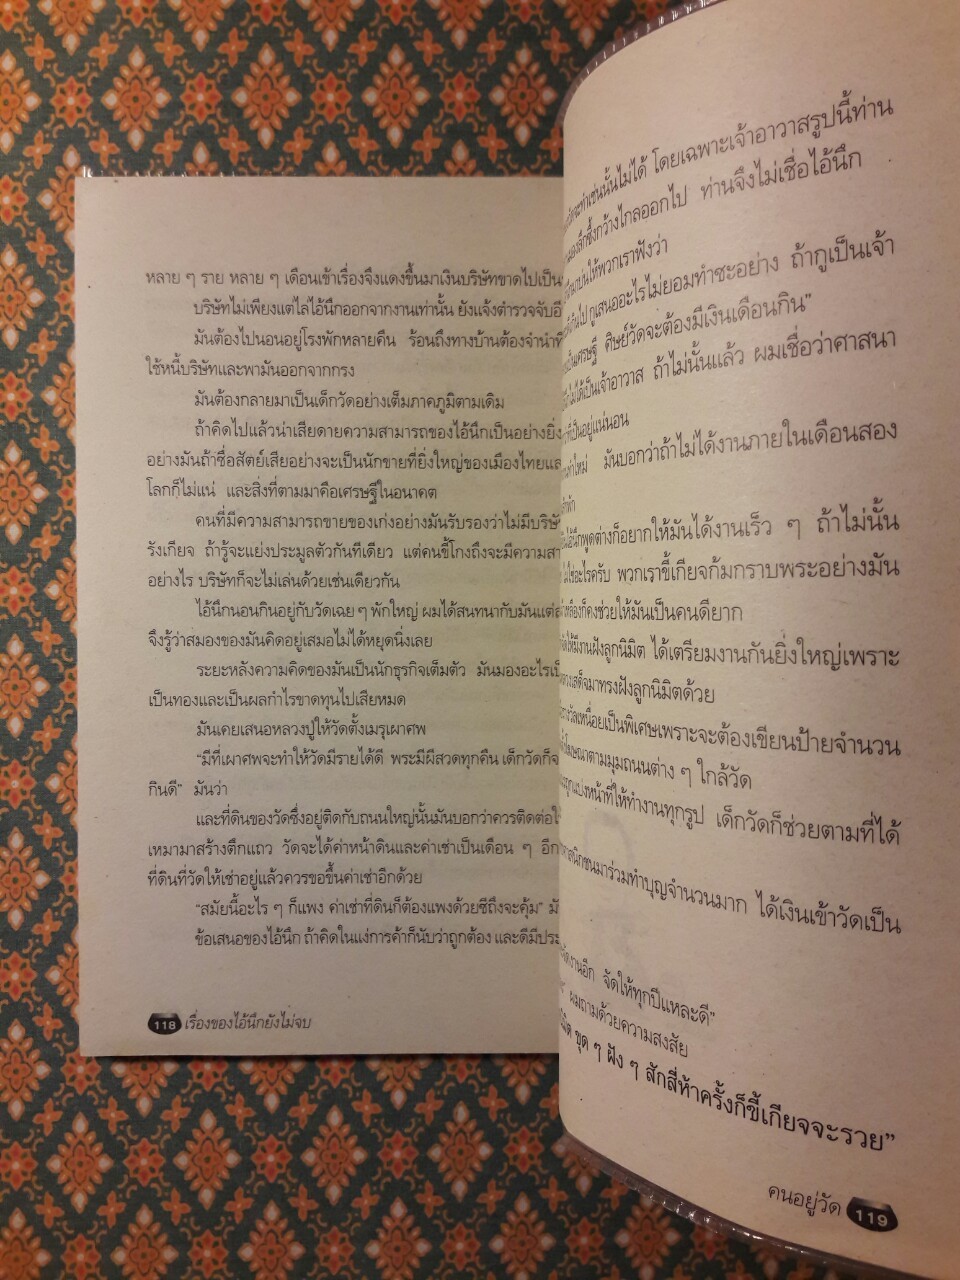 หลาย ๆ ราย หลาย ๆ เดือนเข้าเรื่องจึงแดงขึ้นมาเงินบริษัทขาดไปเป็น
บริษัทไม่เพียงแต่ไล่ไอ้นึกออกจากงานเท่านั้น ยังแจ้งตำรวจจับ
มันต้องไปนอนอยู่โรงพักหลายคืน ร้อนถึงทางบ้านต้องจำนำ
ใช้หนี้บริษัทและพามันออกจากกรง
มันต้องกลายมาเป็นเด็กวัดอย่างเต็มภาคภูมิตามเดิม
ถ้าคิดไปแล้วน่าเสียดายความสามารถของไอ้นึกเป็นอย่างยิ่ง
อย่างมันถ้าซื่อสัตย์เสียอย่างจะเป็นนักขายที่ยิ่งใหญ่ของเมืองไทย
โลกก็ไม่แน่ และสิ่งที่ตามมาคือเศรษฐีในอนาคต
คนที่มีความสามารถขายของเก่งอย่างมันรับรองว่าไม่มีบริษั
รังเกียจ ถ้ารู้จะแย่งประมูลตัวกันทีเดียว แต่คนขี้โกงถึงจะมีความ
อย่างไร บริษัทก็จะไม่เล่นด้วยเช่นเดียวกัน
ไอ้นึกนอนกินอยู่กับวัดเฉย ๆ พักใหญ่ ผมได้สนทนากับมัน
จึงรู้ว่าสมองของมันคิดอยู่เสมอไม่ได้หยุดนิ่งเลย
ระยะหลังความคิดของมันเป็นนักธุรกิจเต็มตัว มันมองอะไร
เป็นทองและเป็นผลกำไรขาดทุนไปเสียหมด
มันเคยเสนอหลวงปู่ให้วัดตั้งเมรุเผาศพ
“มีที่เผาศพจะทำให้วัดมีรายได้ดี พระมีผีสวดทุกคืน เด็กวัดก็
กินดี” มันว่า
และที่ดินของวัดซึ่งอยู่ติดกับถนนใหญ่นั้นมันบอกว่าควรติดต่อ
เหมามาสร้างตึกแถว วัดจะได้ค่าหน้าดินและค่าเช่าเป็นเดือน ๆ อีก
ที่ดินที่วัดให้เช่าอยู่แล้วควรขอขึ้นค่าเช่าอีกด้วย
“สมัยนี้อะไร ๆ ก็แพง ค่าเช่าที่ดินก็ต้องแพงด้วยซีถึงจะคุ้ม”
ข้อเสนอของไอ้นึก ถ้าคิดในแง่การค้าก็นับว่าถูกต้อง และดีมี
118 เรื่องของไอ้นึกยังไม่จบ
จะทำเช่นนั้นไม่ได้ โดยเฉพาะเจ้าอาวาสรูปนี้ท่าน
มองลึกซึ้งกว้างไกลออกไป ท่านจึงไม่เชื่อไอ้นึก
ให้พวกเราฟังว่า
เกินไป กูเสนออะไรไม่ยอมทำซะอย่าง ถ้ากูเป็นเจ้า
เป็นเศรษฐี ศิษย์วัดจะต้องมีเงินเดือนกิน”
ไม่ได้เป็นเจ้าอาวาส ถ้าไม่นั้นแล้ว ผมเชื่อว่าศาสนา
อยู่แน่นอน
ใหม่ มันบอกว่าถ้าไม่ได้งานภายในเดือนสอง
ไอ้นึกพูดต่างก็อยากให้มันได้งานเร็ว ๆ ถ้าไม่นั้น
ไม่ใช่อะไรครับ พวกเราขี้เกียจก้มกราบพระอย่างมัน
ก็คงช่วยให้มันเป็นคนดียาก
ให้มีงานฝังลูกนิมิต ได้เตรียมงานกันยิ่งใหญ่เพราะ
เสด็จมาทรงฝังลูกนิมิตด้วย
เหนื่อยเป็นพิเศษเพราะจะต้องเขียนป้ายจำนวน
โฆษณาตามมุมถนนต่าง ๆ ใกล้วัด
ถูกแบ่งหน้าที่ให้ทำงานทุกรูป เด็กวัดก็ช่วยตามที่ได้
ศาสนิกชนมาร่วมทำบุญจำนวนมาก ได้เงินเข้าวัดเป็น
งานอีก จัดให้ทุกปีแหละดี”
ผมถามด้วยความสงสัย
ขุด ๆ ฝัง ๆ สักสี่ห้าครั้งก็ขี้เกียจจะรวย”
คนอยู่วัด 119